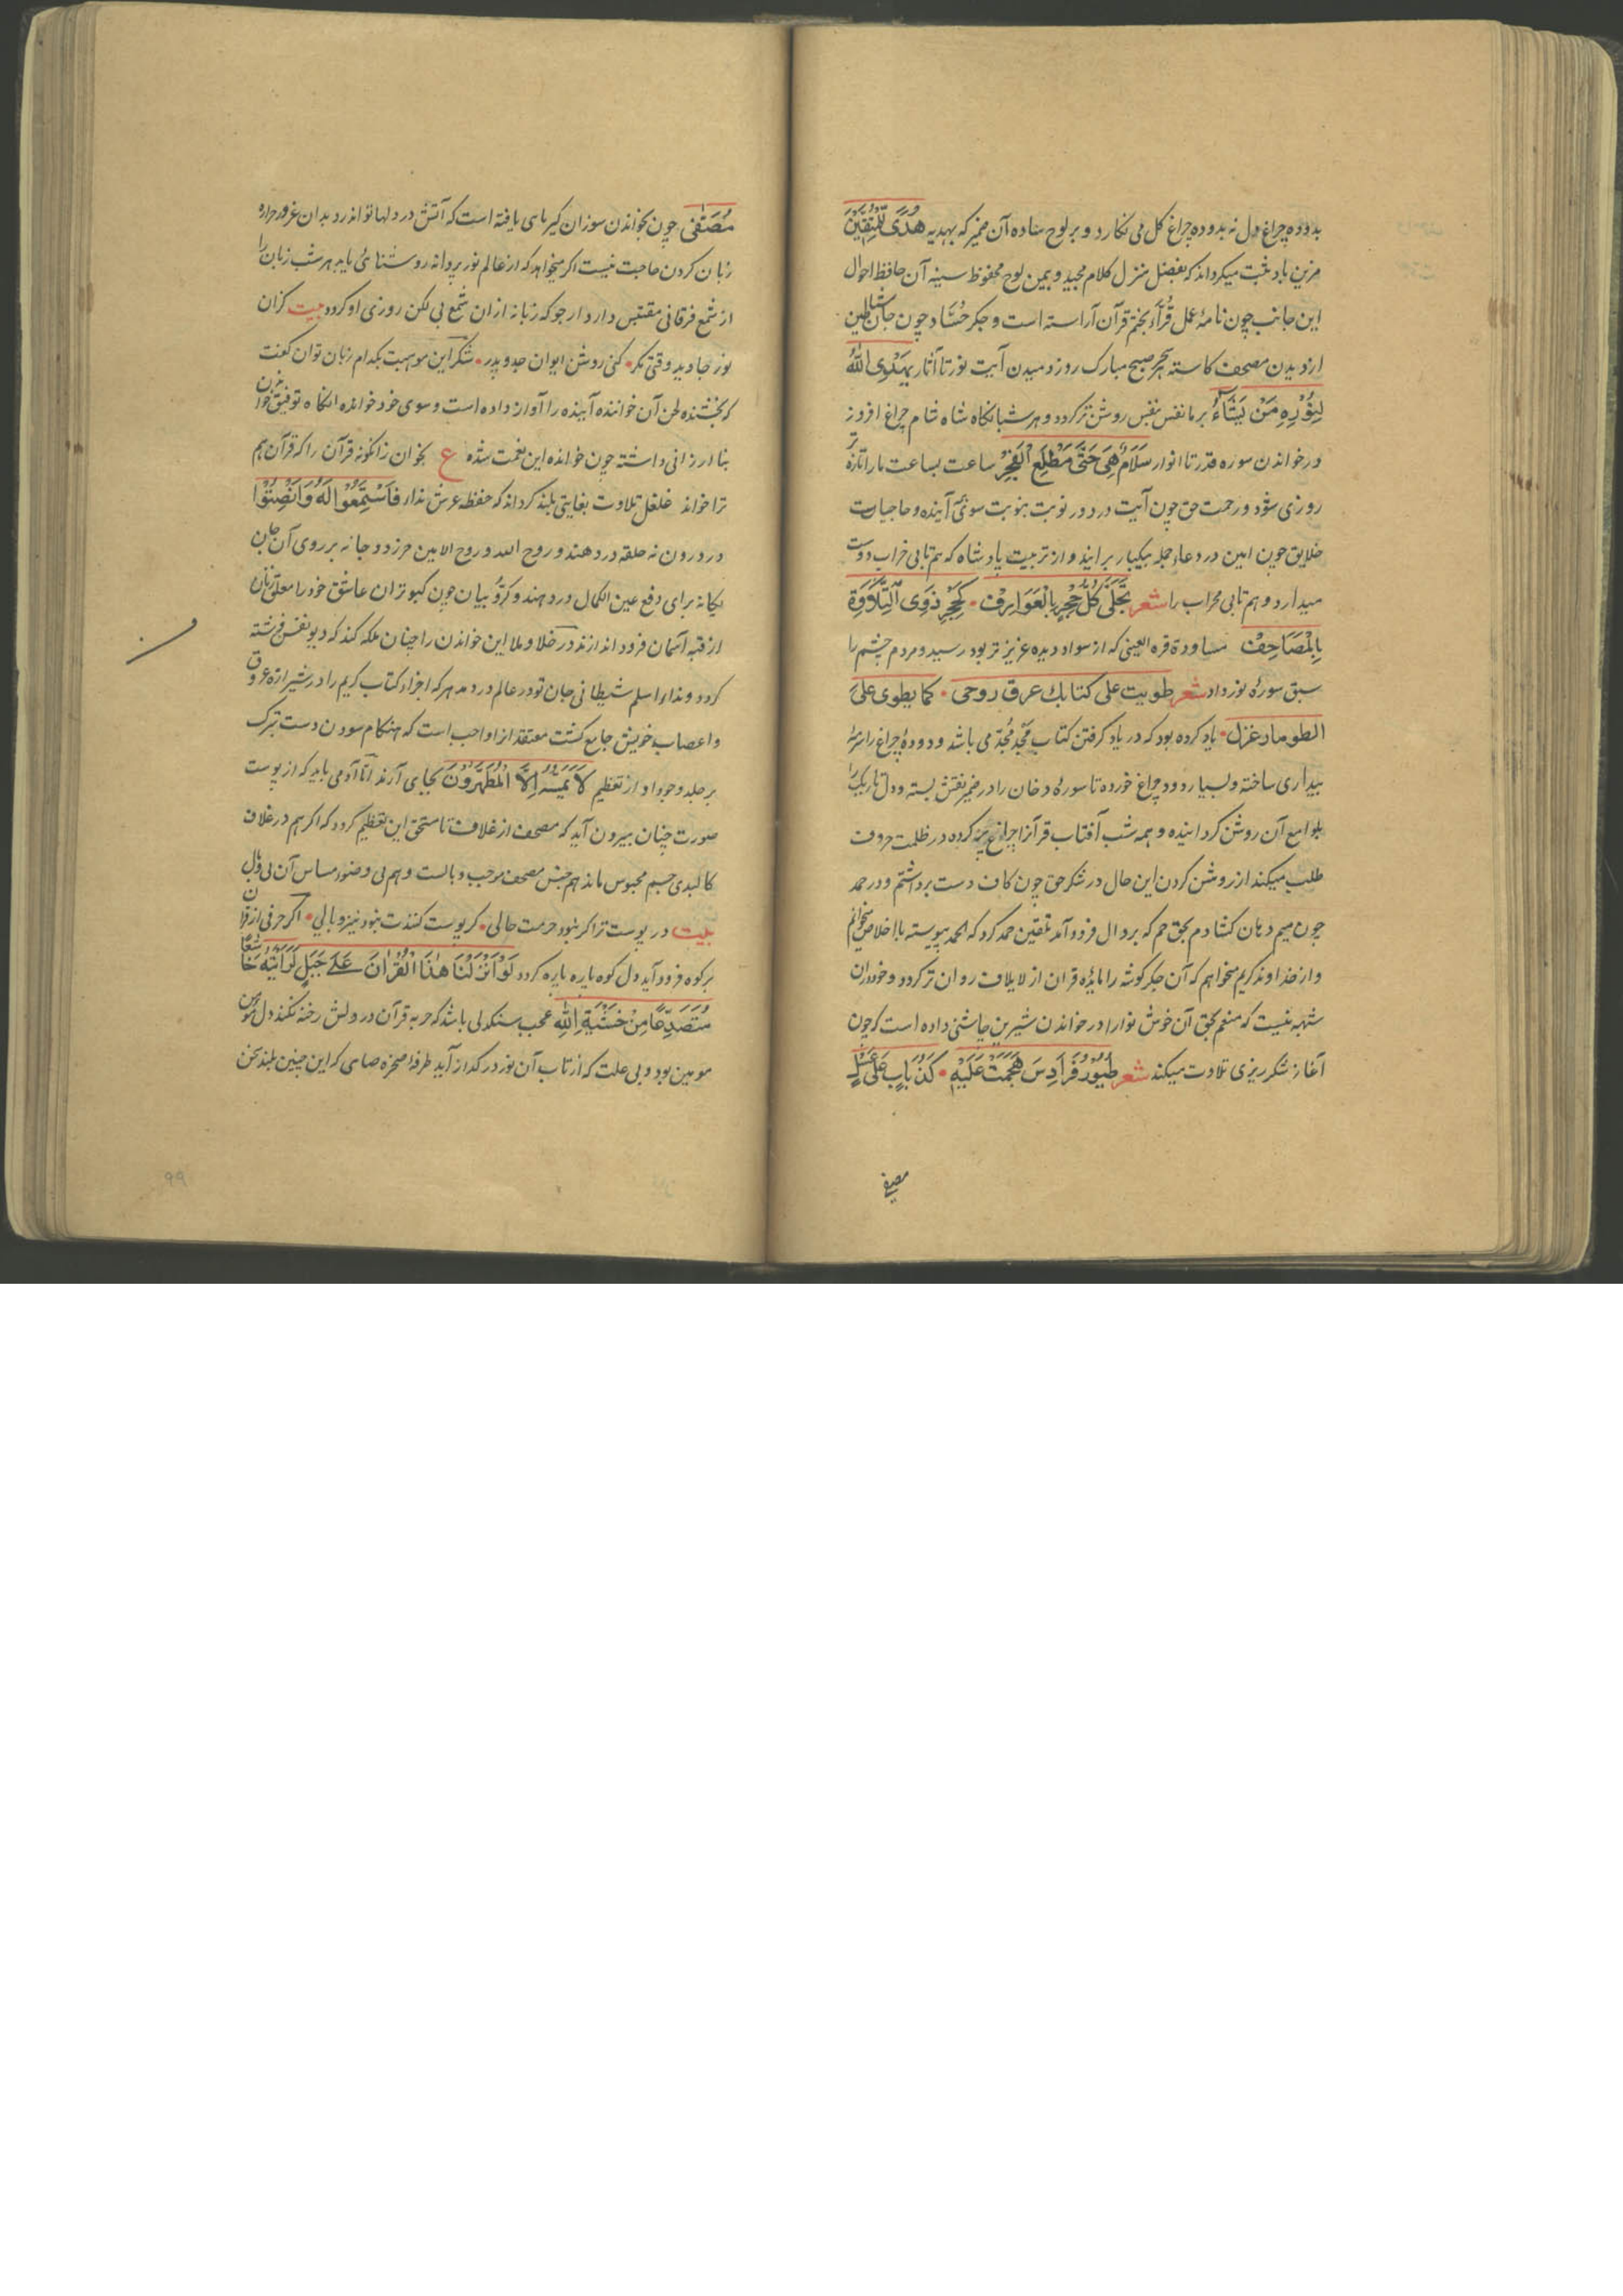 بدوده چراغ دل نه بدوده چراغ گل می نگارد و بر لوح ساده آن ضمیر که بهدیه هُدًی لِلْمُتَّقِیْنَ
مزین باد ثبت میکرداند که بفضل منزل کلام مجید و بیمن لوح محفوظ سینه آن حافظ احوال
این جانب چون نامۀ عمل قُرّاء بختم قرآن آراسته است و جگر حُسّاد چون جان شیاطین
از دیدن مصحف کاسته هر سحر صبح مبارک روز دمیدن آیت نور تا آثار یَهْدِی اللّٰهُ
لِنُوْرِهٖ مَنْ یَّشَآءُ بر ما نفس بنفس روشن تر کردد و هر شبانکاه شاه شام چراغ افروز
در خواندن سوره قدر تا انوار سَلَامٌ هِیَ حَتّٰی مَطْلَعِ الْفَجْرِ ساعت بساعت ما را تازه تر
روزی شود و رحمت حق چون آیت در دور نوبت بنوبت سوئی آینده و حاجیات
خلایق چون امین در دعاء جمله بیکبار برایند و از تربیت پادشاه که هم تابی خراب دوست
میدارد و هم تابی محراب را شعر تَجَلّٰی کُلُّ حُجْرٍ بِالْعَوَارِفْ • کَحُجْرِ ذَوِی التِّلَاوَةِ
بِالْمَصَاحِفْ مساودة قره العینی که از سواد دیده عزیز تر بود رسید و مردم چشم را
سبق سورۀ نور داد شعر طویت علی کتابك عرق روحی • کما یطوی علی
الطومار غزل • یاد کرده بود که در یاد کرفتن کتاب مَجْد مُجِدّ می باشد و دودۀ چراغ را سرمۀ
بیداری ساخته و بسیار دود چراغ خورده تا سورۀ دخان را در ضمیر نقش بسته و دل تاریک را
بلوامع آن روشن کردانیده و همه شب آفتاب قرآنرا چراغ پیه کرده در ظلمت حروف
طلب میکند از روشن کردن این حال در شکر حق چون کاف دست برداشتم و در حمد
چون میم دهان کشادم بحق حم که بر دال فرود آمد تلقین حمد کرد که الحمد پیوسته با اخلاص میخوانم
و از خداوند کریم میخواهم که آن جگر کوشه را مایدۀ قران از لایلاف روان تر کردد و خود دران
شبهه نیست که منعم بحق آن خوش نوا را در خواندن شیرین چاشنی داده است که چون
آغاز شکر ریزی تلاوت میکند شعر طُیُوْرُ فَرَادِسَ هَجَمَتْ عَلَیْهِ • کَذُبَابٍ عَلٰی عَسَلٍ
مصفی
مُصَفّٰی چون بخواندن سوزان کیر بای یافته است که آتش در دلها تواند زد بدان غرور جزاره
زبان کردن حاجت نیست اکر میخواهد که از عالم نور پروانه روشنائی یابد هر شب زبان را
از شمع فرقانی مقتبس دارد ارجو که زبانه ازان شمع بی لکن روزی او کردد بیت کزان
نور جاوید وقتی مکر • کنی روشن ایوان جد و پدر • شکر این موهبت بکدام زبان توان کفت
که بخشنده لحن آن خواننده آینده را آواز داده است و سوی خود خوانده انکاه توفیق خواندن
بنا ارزانی داشته چون خوانده این نعمت شده ع بخوان زانکونه قرآن را که قرآن هم
ترا خواند غلغل تلاوت بغایتی بلند کرداند که حفظه عرش نداء فَاسْتَمِعُوْا لَهٗ وَاَنْصِتُوْا
در درون نه حلقه در دهند و روح الله و روح الامین حرز دو جانه بر روی آن جان
یکانه برای دفع عین الکمال در دهند و کرّوبیان چون کبوتران عاشق خود را معلق زنان
از قبه آسمان فرود اندازند در خلا و ملا این خواندن را چنان ملکه کند که دیو نفس فرشته
کردد و نداء اسلم شیطانی جان تو در عالم در دمد هر که اجزاء کتاب کریم را در شیرازه عروق
و اعصاب خویش جامع کشت معتقد از او واجب است که هنکام سودن دست تبرک
بر جلد وجود او از تعظیم لَا یَمَسُّهٗ اِلَّا الْمُطَهَّرُوْنَ بجای آرند امّا آدمی باید که از پوست
صورت چنان بیرون آید که مصحف از غلاف تا مستحق این تعظیم کردد که اکر هم در غلاف
کالبدی جسم محبوس ماند هم جنس مصحف مرجب و بالست و هم بی وضوء مساس آن بی وبال
بیت در پوست ترا کر نبود حرمت حالی • کر پوست کنندت نبود نیز وبالی • اکر حرفی از قران
بر کوه فرود آید دل کوه پاره پاره کردد لَوْ اَنْزَلْنَا هٰذَا الْقُرْاٰنَ عَلٰی جَبَلٍ لَّرَاَیْتَهٗ خَاشِعًا
مُتَصَدِّعًا مِنْ خَشْیَةِ اللّٰهِ عجب سنکدلی باشد که حربه قرآن در دلش رخنه نکند دل مومن
مومین بود و بی علت که از تاب آن نور در کداز آید طرفه صخره صمای که این چنین بلند سخن
۹۹